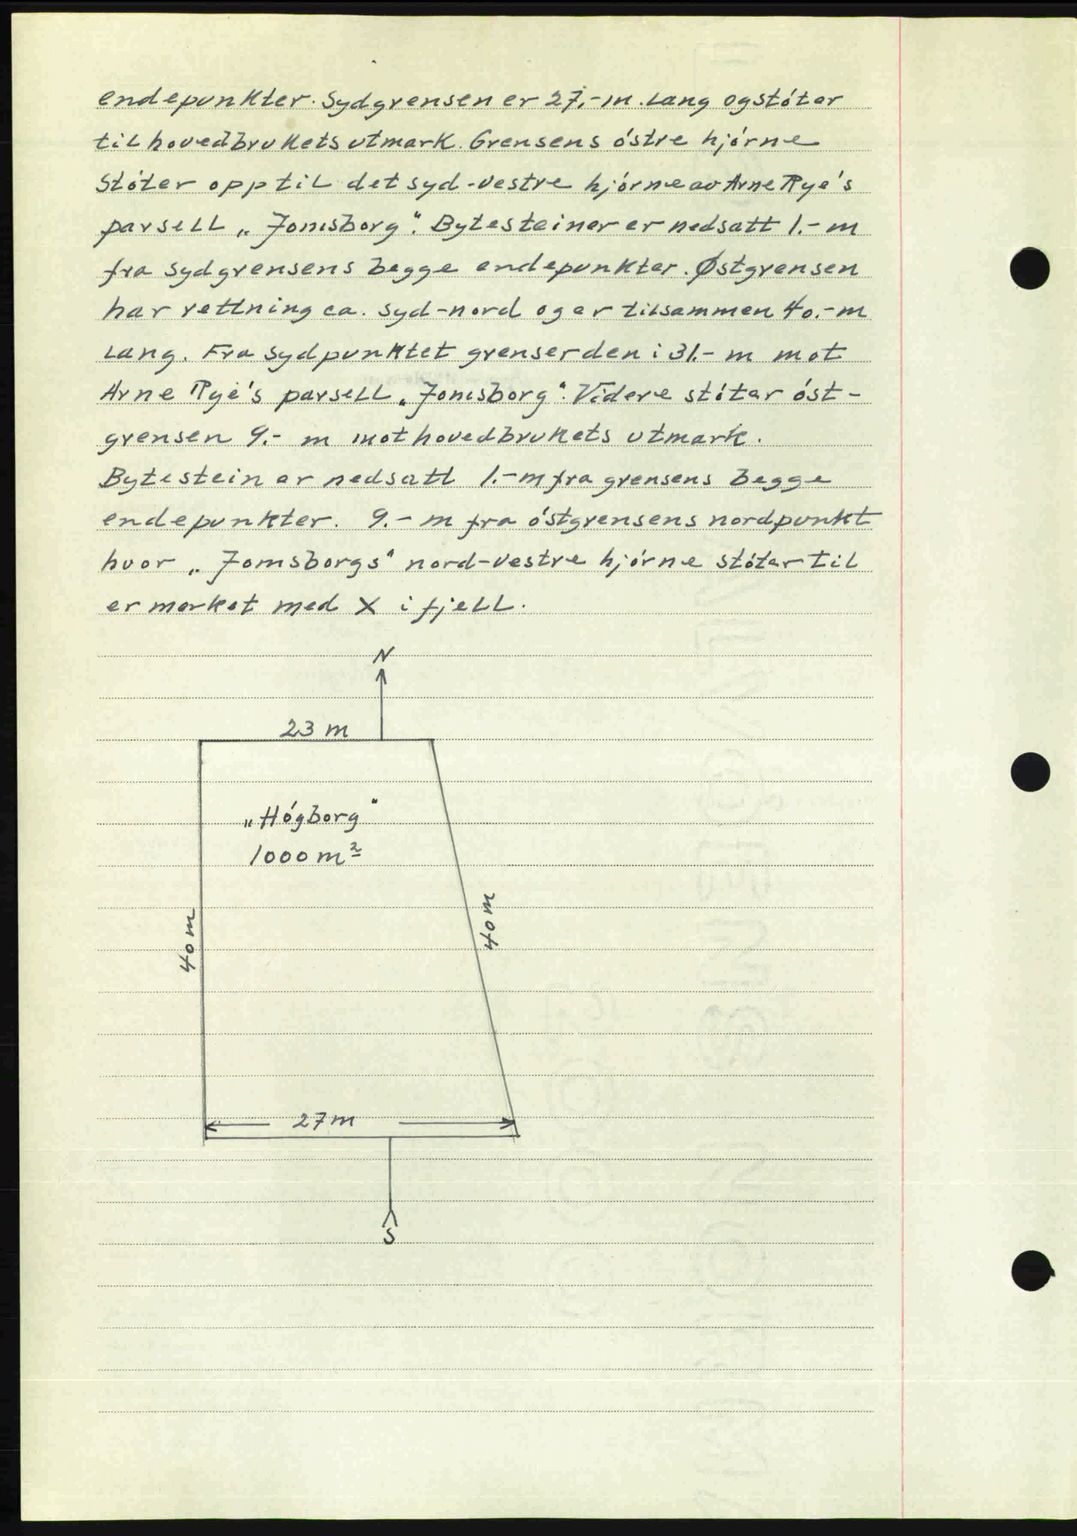 endepunkter. Sydgrensen er 27,-m. lang og stóter
til hovedbrukets utmark. Grensens óstre hjórne
stóter opp til det syd-vestre hjórne av Arne Rye's
parsell „Jomsborg“. Bytesteiner er nedsatt 1.- m
fra sydgrensens begge endepunkter. Østgrensen
har rettning ca. syd-nord og er tilsammen 40.-m
lang. Fra sydpunktet grenser den i 31.- m mot
Arne Rye's parsell „Jomsborg“. Videre stóter óst-
grensen 9.- m mot hovedbrukets utmark.
Bytestein er nedsatt 1.-m fra grensens begge
endepunkter. 9.- m fra óstgrensens nordpunkt
hvor „Jomsborgs“ nord-vestre hjórne stóter til
er merket med X i fjell.
N
23 m
„Hógborg“
1000 m²
40 m
40 m
27 m
S